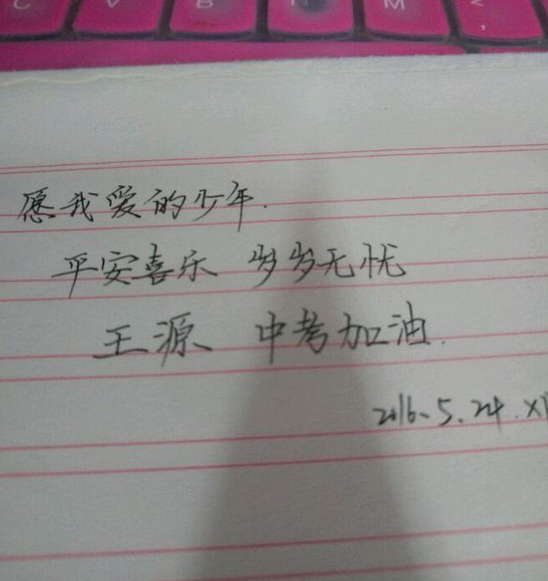 C V B N M <
,
愿我爱的少年.
平安喜乐 岁岁无忧
王源、中考加油.
2016.5.24.